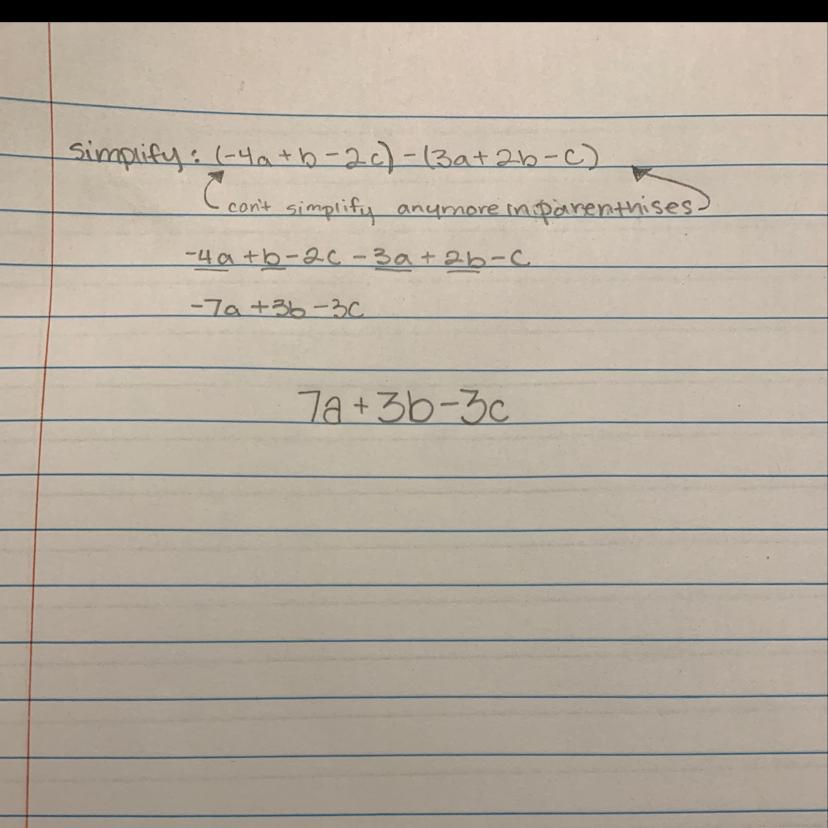 simplify: (-4a+b-2c)-(3a+2b-c)
can't simplify anymore in parenthises
-4a+b-2c-3a+2b-c
-7a+3b-3c
7a+3b-3c